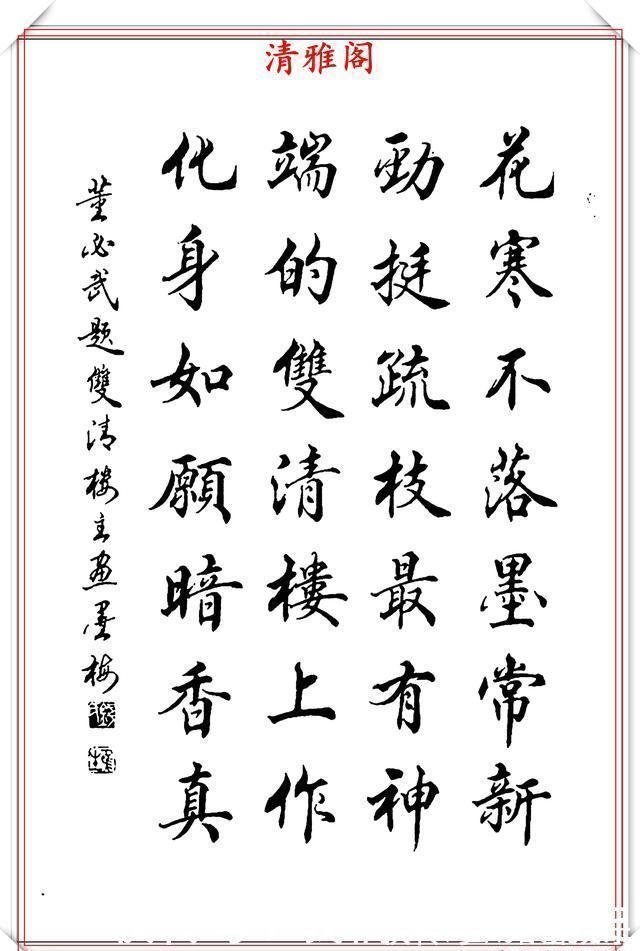 清雅阁
花寒不落墨常新
勁挺疏枝最有神
端的雙清樓上作
化身如願暗香真
董必武題雙清樓主畫墨梅